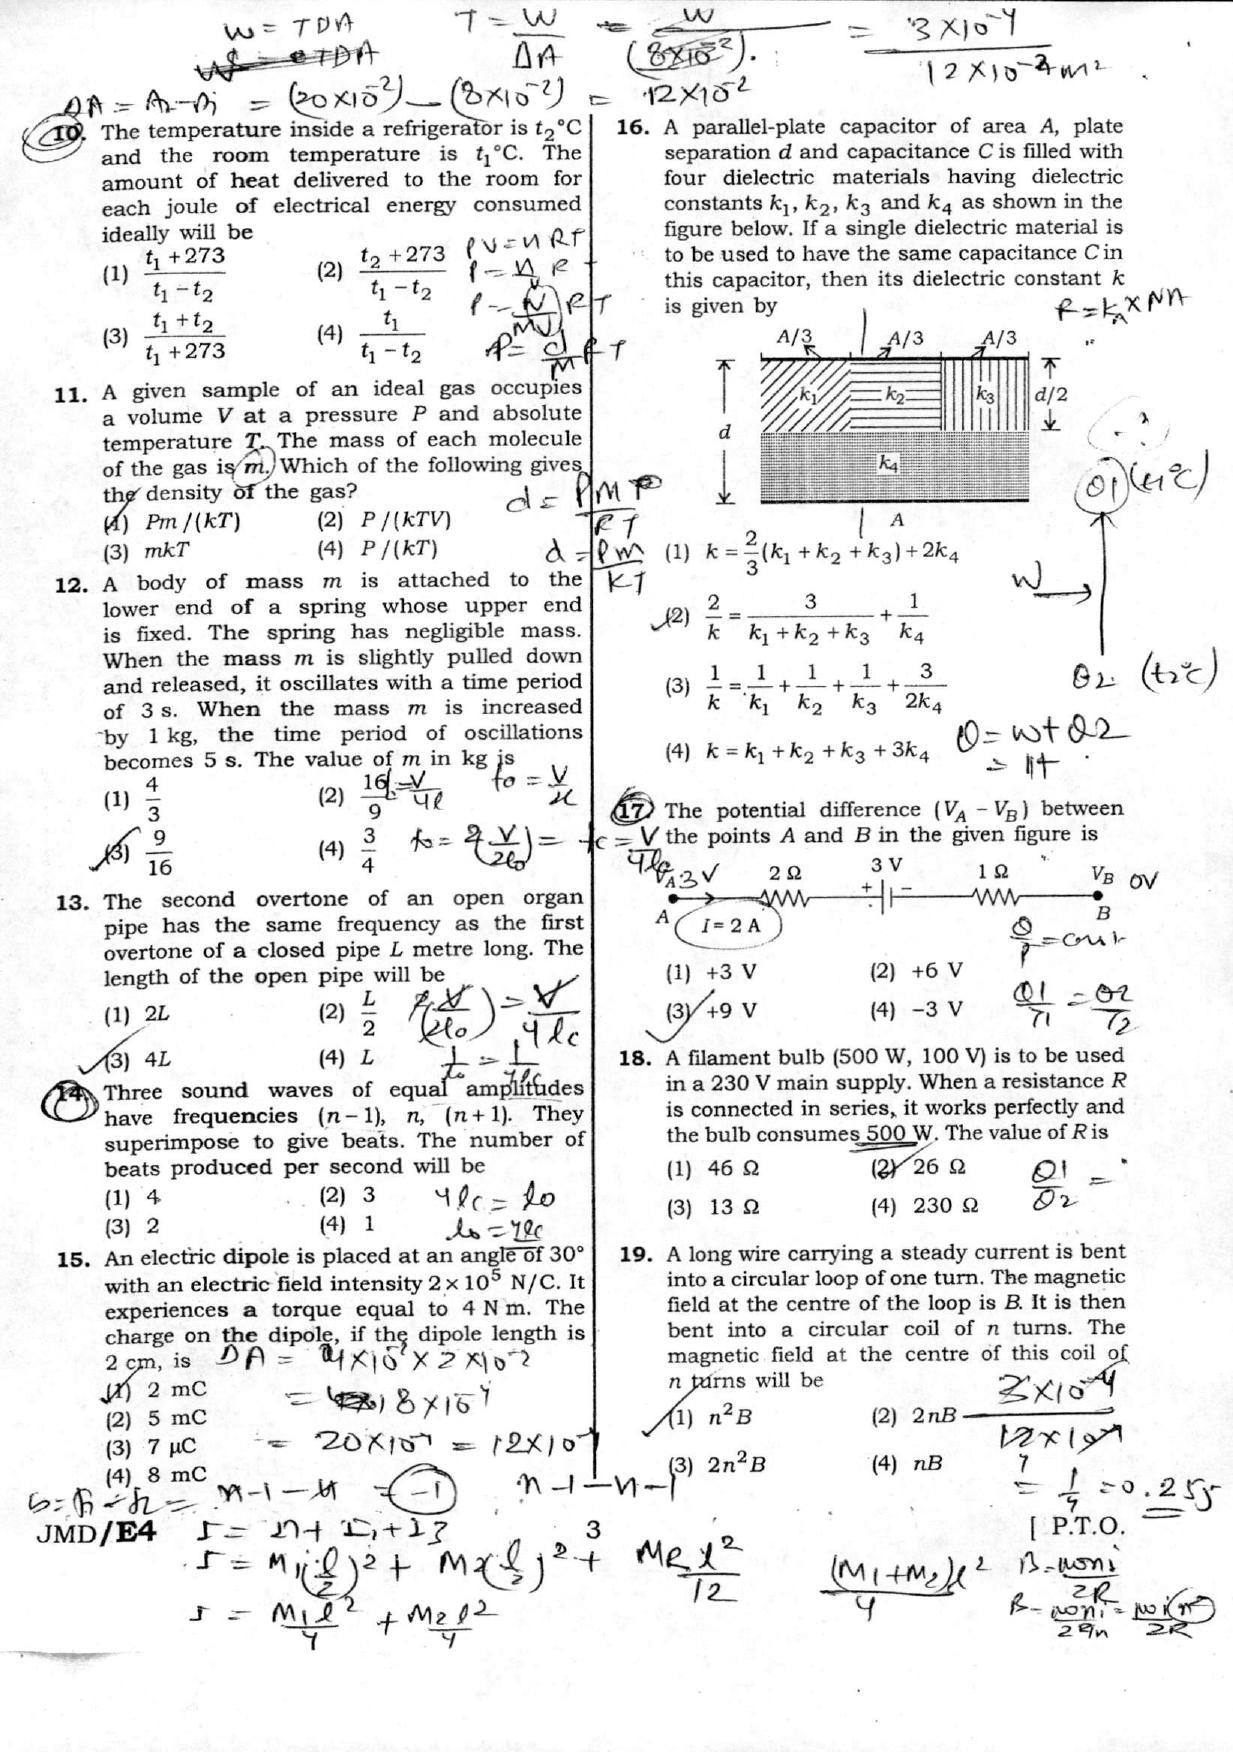 W = TΔA
T = W/ΔA = W/(8×10⁻²). = 3×10⁻⁴/12×10⁻²m²
ΔA = A₂ − A₁ = (20×10⁻²) − (8×10⁻²) = 12×10⁻²
10. The temperature inside a refrigerator is t₂°C
and the room temperature is t₁°C. The
amount of heat delivered to the room for
each joule of electrical energy consumed
ideally will be
(1) (t₁ + 273)/(t₁ − t₂) (2) (t₂ + 273)/(t₁ − t₂)
(3) (t₁ + t₂)/(t₁ + 273) (4) t₁/(t₁ − t₂)
PV = nRT
11. A given sample of an ideal gas occupies
a volume V at a pressure P and absolute
temperature T. The mass of each molecule
of the gas is m. Which of the following gives
the density of the gas?
(1) Pm /(kT) (2) P /(kTV)
(3) mkT (4) P /(kT)
d = PM/RT
d = Pm/KT
12. A body of mass m is attached to the
lower end of a spring whose upper end
is fixed. The spring has negligible mass.
When the mass m is slightly pulled down
and released, it oscillates with a time period
of 3 s. When the mass m is increased
by 1 kg, the time period of oscillations
becomes 5 s. The value of m in kg is
(1) 4/3 (2) 16/9
(3) 9/16 (4) 3/4
13. The second overtone of an open organ
pipe has the same frequency as the first
overtone of a closed pipe L metre long. The
length of the open pipe will be
(1) 2L (2) L/2
(3) 4L (4) L
14. Three sound waves of equal amplitudes
have frequencies (n − 1), n, (n + 1). They
superimpose to give beats. The number of
beats produced per second will be
(1) 4 (2) 3
(3) 2 (4) 1
4lc = lo
lo = 4lc
15. An electric dipole is placed at an angle of 30°
with an electric field intensity 2 × 10⁵ N/C. It
experiences a torque equal to 4 N m. The
charge on the dipole, if the dipole length is
2 cm, is
(1) 2 mC
(2) 5 mC
(3) 7 µC
(4) 8 mC
n−1−n = −1
n−1−n−1
JMD/E4
3
16. A parallel-plate capacitor of area A, plate
separation d and capacitance C is filled with
four dielectric materials having dielectric
constants k₁, k₂, k₃ and k₄ as shown in the
figure below. If a single dielectric material is
to be used to have the same capacitance C in
this capacitor, then its dielectric constant k
is given by
A/3 A/3 A/3
k₁ k₂ k₃ d/2
d
k₄
A
(1) k = 2/3 (k₁ + k₂ + k₃) + 2k₄
(2) 2/k = 3/(k₁ + k₂ + k₃) + 1/k₄
(3) 1/k = 1/k₁ + 1/k₂ + 1/k₃ + 3/2k₄
(4) k = k₁ + k₂ + k₃ + 3k₄
Q1 (t₁°C)
W
Q2 (t₂°C)
Q = W + Q2
17. The potential difference (V_A − V_B) between
the points A and B in the given figure is
V_A 3V 2 Ω 3 V 1 Ω V_B 0V
A I = 2 A B
(1) +3 V (2) +6 V
(3) +9 V (4) −3 V
Q1/T1 = Q2/T2
18. A filament bulb (500 W, 100 V) is to be used
in a 230 V main supply. When a resistance R
is connected in series, it works perfectly and
the bulb consumes 500 W. The value of R is
(1) 46 Ω (2) 26 Ω
(3) 13 Ω (4) 230 Ω
Q1/Q2 =
19. A long wire carrying a steady current is bent
into a circular loop of one turn. The magnetic
field at the centre of the loop is B. It is then
bent into a circular coil of n turns. The
magnetic field at the centre of this coil of
n turns will be
(1) n²B (2) 2nB
(3) 2n²B (4) nB
3×10⁻⁴
= 1/4 = 0.25
[ P.T.O.
(M₁+M₂)l²/4